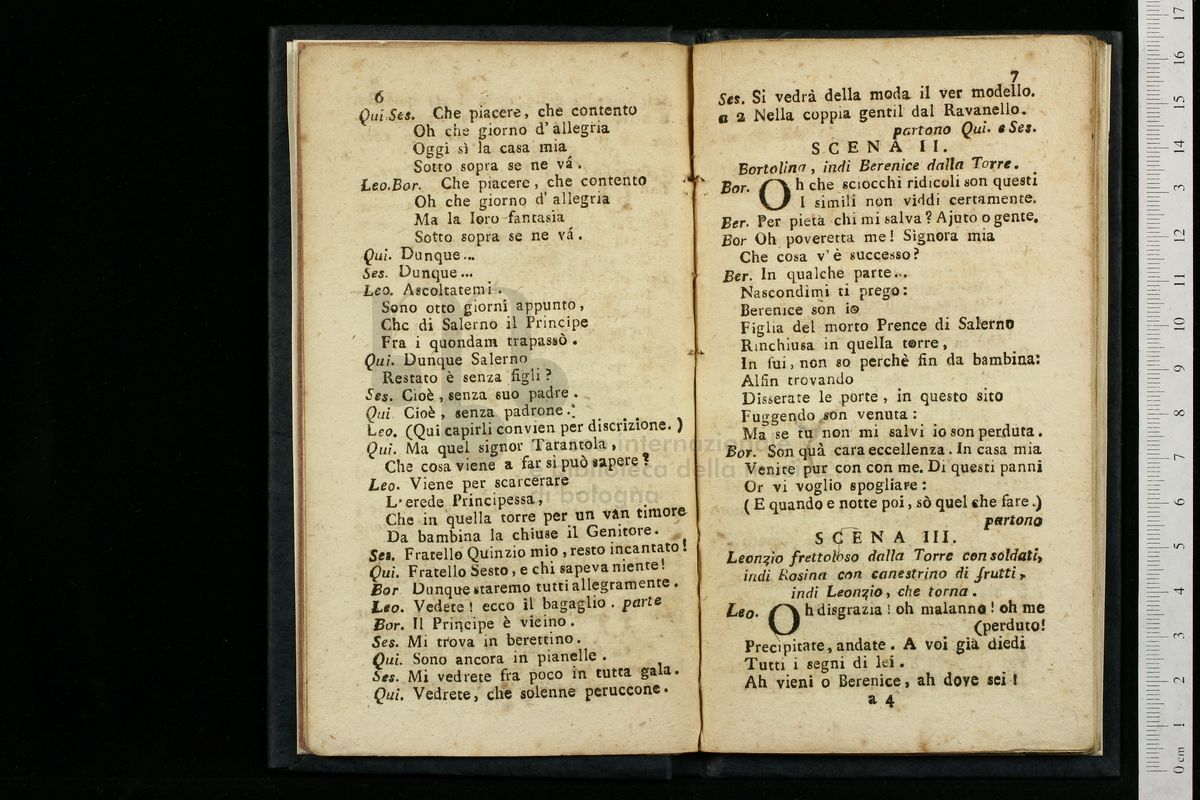 6
Qui.Ses. Che piacere, che contento
Oh che giorno d' allegria
Oggi sì la casa mia
Sotto sopra se ne vá.
Leo.Bor. Che piacere, che contento
Oh che giorno d' allegria
Ma la loro fantasia
Sotto sopra se ne vá.
Qui. Dunque...
Ses. Dunque...
Leo. Ascoltatemi.
Sono otto giorni appunto,
Che di Salerno il Principe
Fra i quondam trapassò.
Qui. Dunque Salerno
Restato è senza figli?
Ses. Cioè, senza suo padre.
Qui. Cioè, senza padrone.
Leo. (Qui capirli convien per discrizione.)
Qui. Ma quel signor Tarantola,
Che cosa viene a far si può sapere?
Leo. Viene per scarcerare
L' erede Principessa,
Che in quella torre per un van timore
Da bambina la chiuse il Genitore.
Ses. Fratello Quinzio mio, resto incantato!
Qui. Fratello Sesto, e chi sapeva niente!
Bor Dunque staremo tutti allegramente.
Leo. Vedete! ecco il bagaglio. parte
Bor. Il Principe è vicino.
Ses. Mi trova in berettino.
Qui. Sono ancora in pianelle.
Ses. Mi vedrete fra poco in tutta gala.
Qui. Vedrete, che solenne peruccone.
7
Ses. Si vedrà della moda il ver modello.
a 2 Nella coppia gentil dal Ravanello.
partono Qui. e Ses.
SCENA II.
Bortolina, indi Berenice dalla Torre.
Bor. Oh che sciocchi ridicoli son questi
I simili non viddi certamente.
Ber. Per pietà chi mi salva? Ajuto o gente.
Bor Oh poveretta me! Signora mia
Che cosa v' è successo?
Ber. In qualche parte...
Nascondimi ti prego:
Berenice son io
Figlia del morto Prence di Salerno
Rinchiusa in quella torre,
In fui, non so perchè fin da bambina:
Alfin trovando
Disserate le porte, in questo sito
Fuggendo son venuta:
Ma se tu non mi salvi io son perduta.
Bor. Son quà cara eccellenza. In casa mia
Venite pur con con me. Di questi panni
Or vi voglio spogliare:
(E quando e notte poi, sò quel che fare.)
partono
SCENA III.
Leonzio frettoloso dalla Torre con soldati,
indi Rosina con canestrino di frutti,
indi Leonzio, che torna.
Leo. Oh disgrazia! oh malanno! oh me
(perduto!
Precipitate, andate. A voi già diedi
Tutti i segni di lei.
Ah vieni o Berenice, ah dove sei!
a 4
internazionale
biblioteca della
di bologna
0 cm 1 2 3 4 5 6 7 8 9 10 11 12 13 14 15 16 17